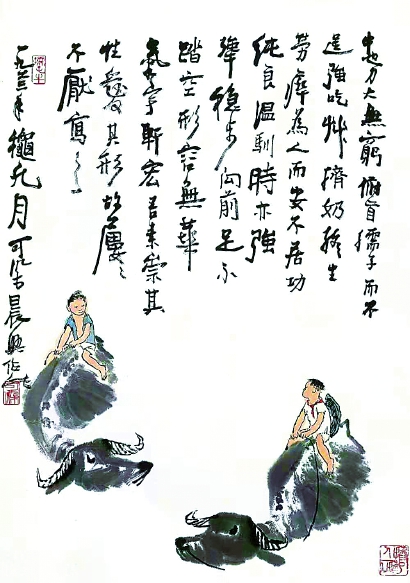 牛也力大無窮俯首孺子而不
逞強吃草擠奶終生
勞瘁為人而安不居功
純良溫馴時亦強
犟穩步向前足不
踏空形容無華
氣宇軒宏吾素崇其
性愛其形故屢〻
不厭寫之
一九六三年龝九月可染晨興作